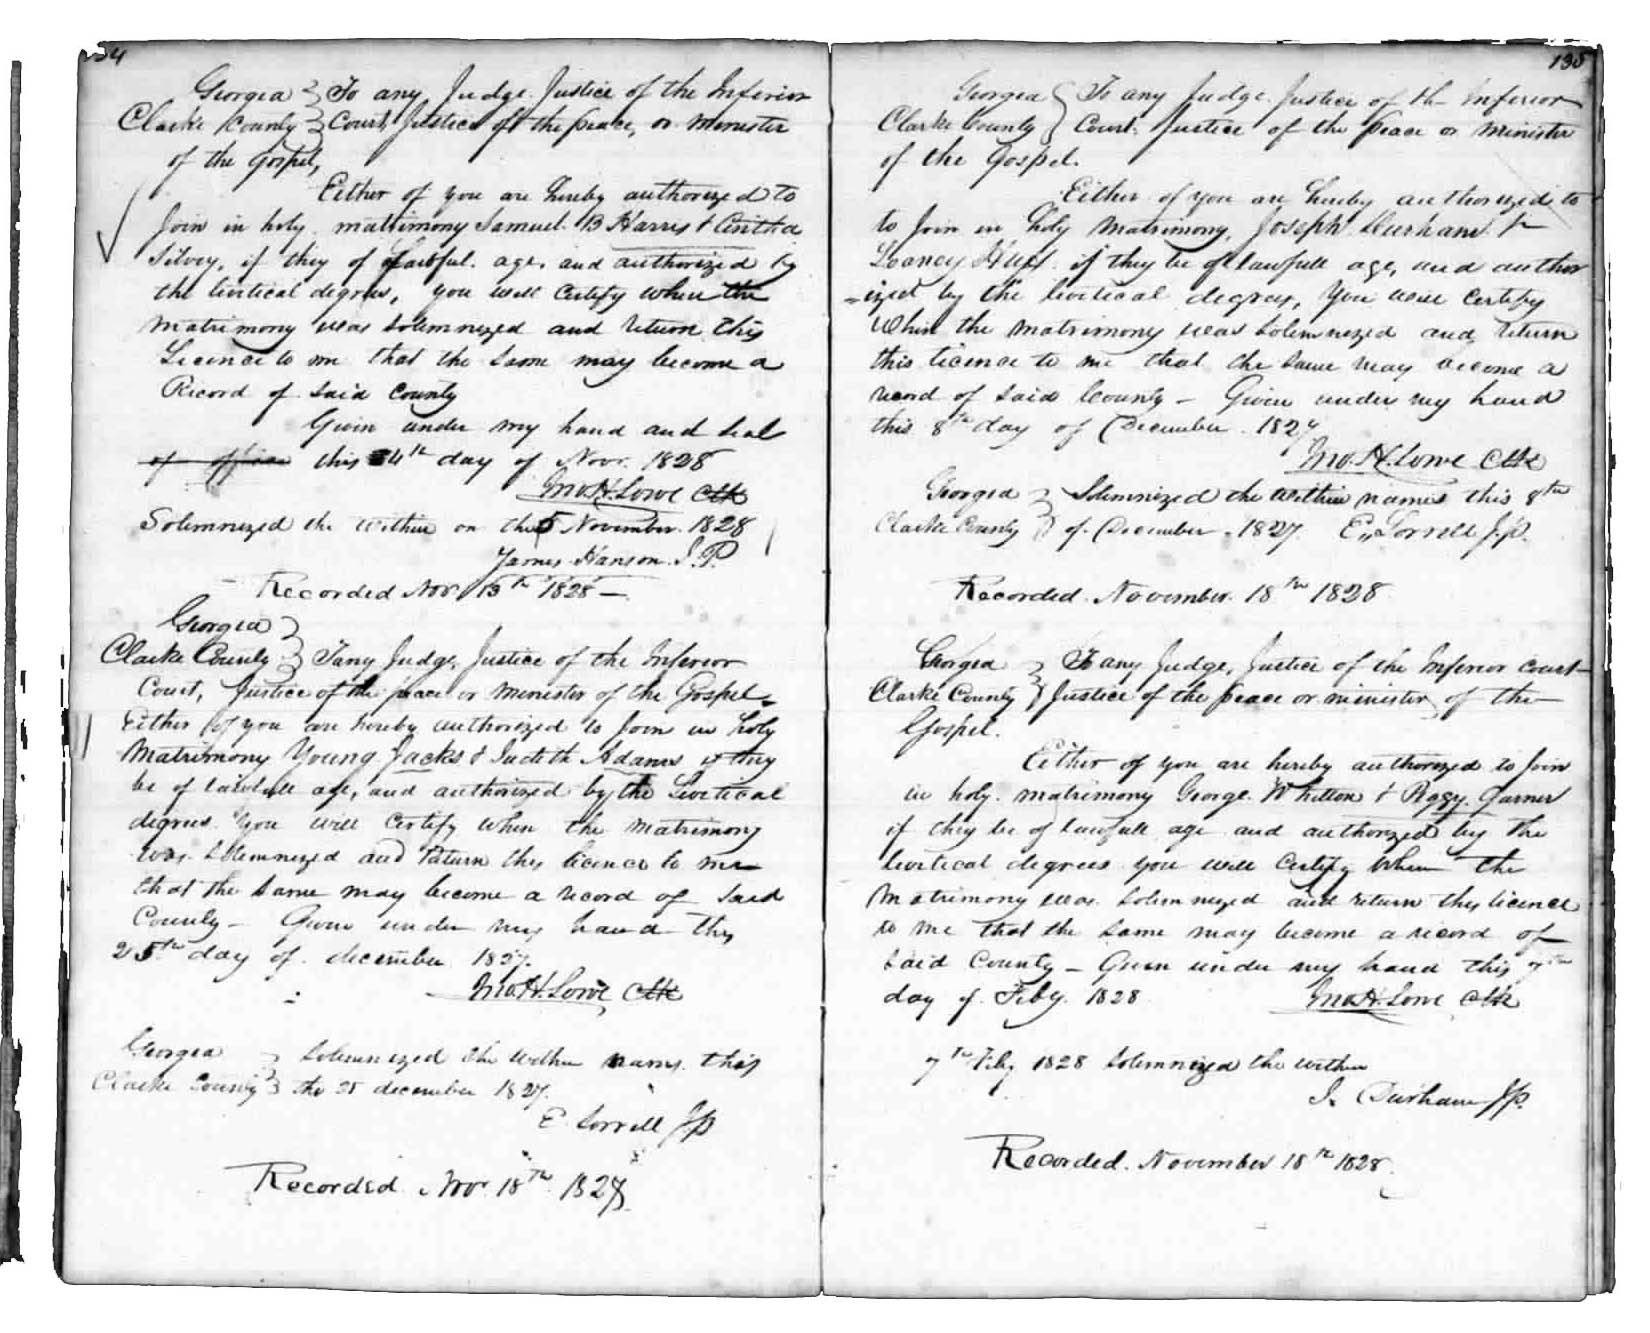 34
Georgia } To any Judge Justice of the Inferior
Clarke County } Court, Justice of the peace, or minister
of the Gospel,
Either of you are hereby authorized to
Join in holy matrimony Samuel B Harris &
Silvey, if they of Lawful age, and authorized by
the Livitical degrees, you will Certify when the
matrimony was Solemnized and return this
Licence to me that the Same may become a
Record of Said County
Given under my hand and Seal
of office this 4th day of Novr. 1828
Jno H. Lowe Clk
Solemnized the within on the 5 November 1828
James Hanson J.P.
Recorded Nov. 13th 1828
Georgia }
Clarke County } Tany Judge, Justice of the Inferior
Court, Justice of the peace or minister of the Gospel
Either of you are hereby authorized to Join in holy
Matrimony Young Jacks & Judith Adams if they
be of lawfull age, and authorized by the Livitical
degrees. You will Certify when the matrimony
was Solemnized and return this licence to me
that the Same may become a record of Said
County – Given under my hand this
25th day of december 1827.
Jno. H. Lowe, Clk
Georgia } Solemnized the within names this
Clarke County } the 25 december 1827.
E. Sorrell J.p
Recorded Nov 18th 1828
135
Georgia } To any Judge Justice of th Inferior
Clarke County } Court. Justice of the Peace or Minister
of the Gospel.
Either of you are hereby authorized to
to Join in Holy Matrimony, Joseph Durham &
Huff if they be of lawfull age, and author
=ized by the livitical degrees, You will Certify
When the matrimony was Solemnized and return
this licence to me that the Same may become a
record of Said County – Given under my hand
this 8th day of December 1827
Jno. H. Lowe Clk
Georgia } Solemnized the within names this 8th
Clarke County } of December 1827. E. Sorrell J.p.
Recorded November 18th 1828
Georgia } To any Judge, Justice of the Inferior Court
Clarke County } Justice of the peace or minister of the
Gospel.
Either of you are hereby authorized to Join
in holy matrimony George Whitton & Peggy Garner
if they be of lawfull age and authorized by the
livitical degrees you will Certify When the
Matrimony was Solemnized and return this licence
to me that the Same may become a record of
Said County – Given under my hand this 7th
day of Feby. 1828 Jno. H. Lowe Clk
7th Feby 1828 Solemnized the within
I. Durham J.p.
Recorded. November 18th 1828.